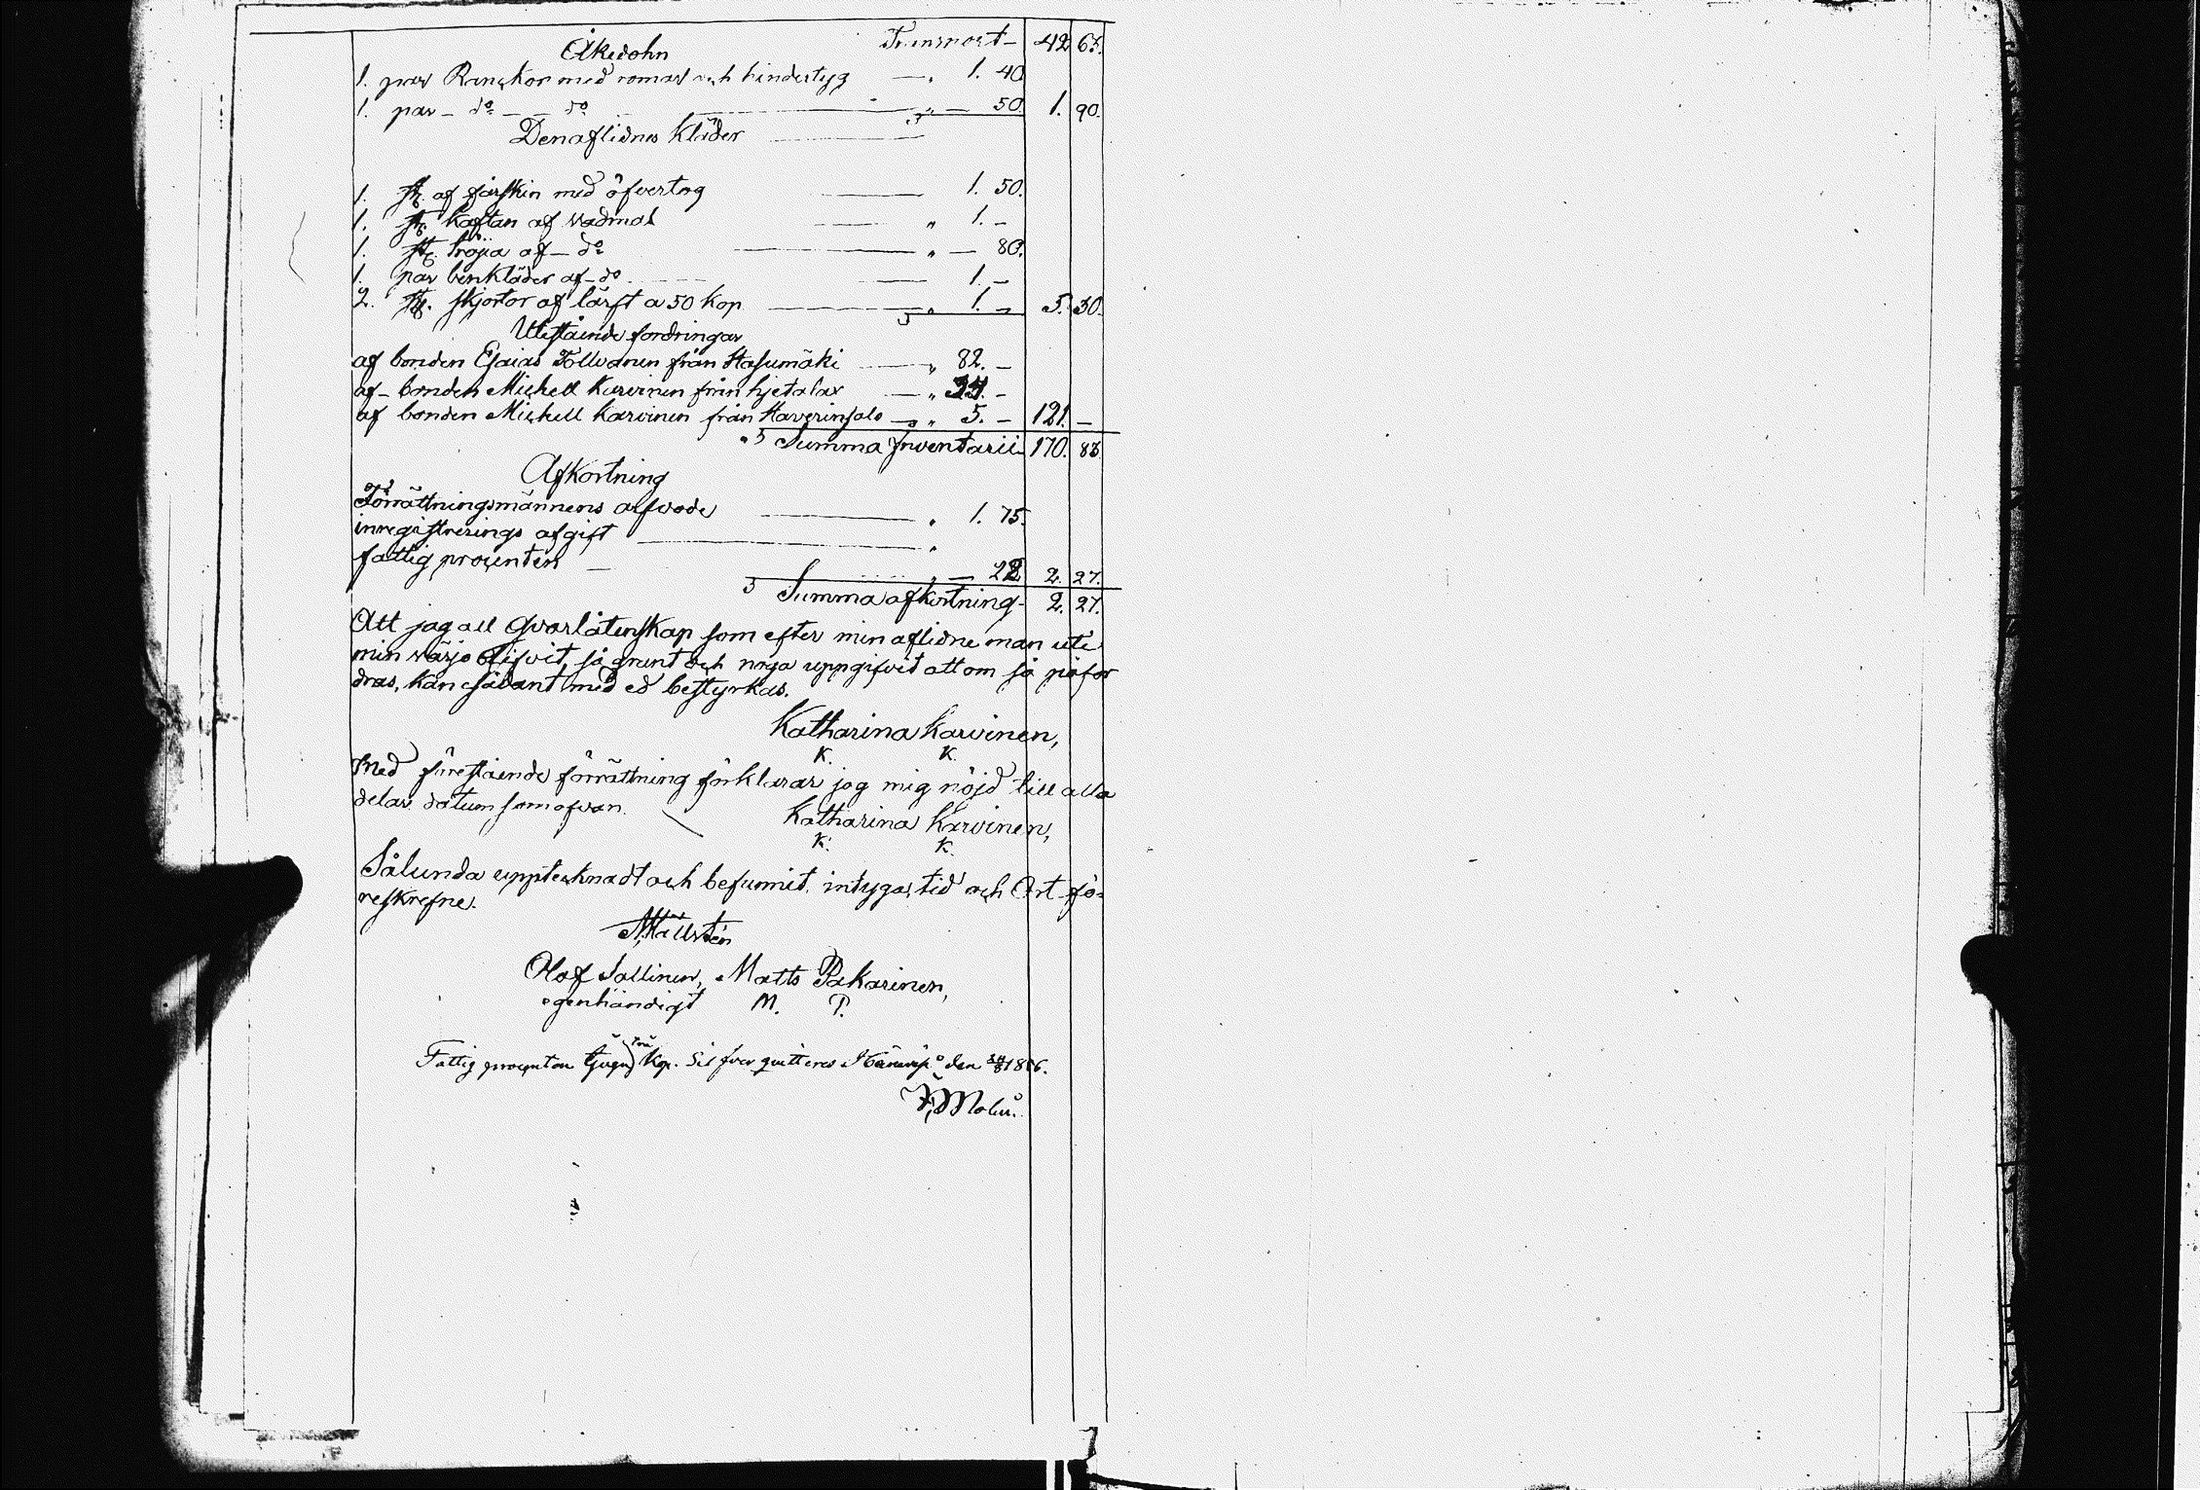 Åkedohn Transport – 42 65.
1. par Ranckor med romar och hindertyg — „ 1. 40
1. par – do — do — „ — 50. 1. 90.
Den aflidnes Kläder
1. st. af fårskin med öfvertog — 1. 50.
1. st. kaftan af vadmal — „ 1. –
1. st. tröja af – do — „ — 80.
1. par benkläder af – do — 1. –
2. st. skjortor af lärft a 50 kop — „ 1. – 5. 30.
Utestående fordringar
af bonden Esaias Tollvanen från Hasumäki — „ 82. –
af – bonden Michell Karvinen från hjetalax — „ 34. –
af bonden Michell Karvinen från Haverinsalo — „ 5. – 121. –
Summa Inventarii 170. 85
Afkortning
Förrättningsmännens arfvode — „ 1. 75.
inregistrerings afgift — „
fattig procenten — „ — 22 2. 27.
Summa afkortning – 2. 27.
Att jag all qvarlåtenskap som efter min aflidne man uti
min värjo blifvit, så grant och noga uppgifvit att om så påfor
dras, kan sådant med ed bestyrkas.
Katharina Karvinen,
K. K.
Med förestående förrättning förklarar jag mig nöjd till alla
delar datum som ofvan.
Katharina Karvinen,
K. K.
Sålunda upptecknadt och befunnit, intygas, tid och Ort fö=
reskrefne.
Olof Sallinen, Matts Pakarinen,
egenhändigt M. P.
Fattig procenten tjugu två Kop. Silfver quitteras den 1856.